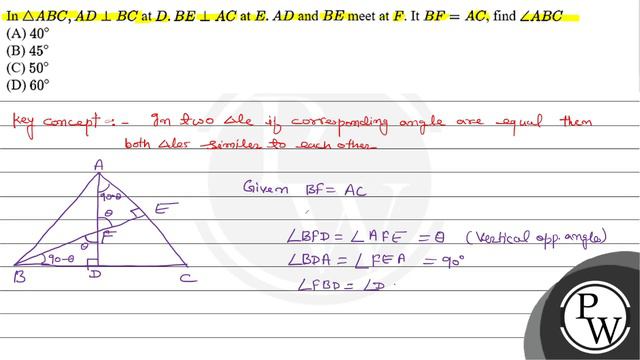 In △ABC, AD ⊥ BC at D. BE ⊥ AC at E. AD and BE meet at F. It BF = AC, find ∠ABC
(A) 40°
(B) 45°
(C) 50°
(D) 60°
Key concept :- In two Δle if corresponding angle are equal them
both Δles similes to each other
A
90-θ
θ
E
F
θ
90-θ
B
D
C
Given BF = AC
∠BFD = ∠AFE = θ (Vertical opp. angles)
∠BDA = ∠FEA = 90°
∠FBD = ∠D
PW